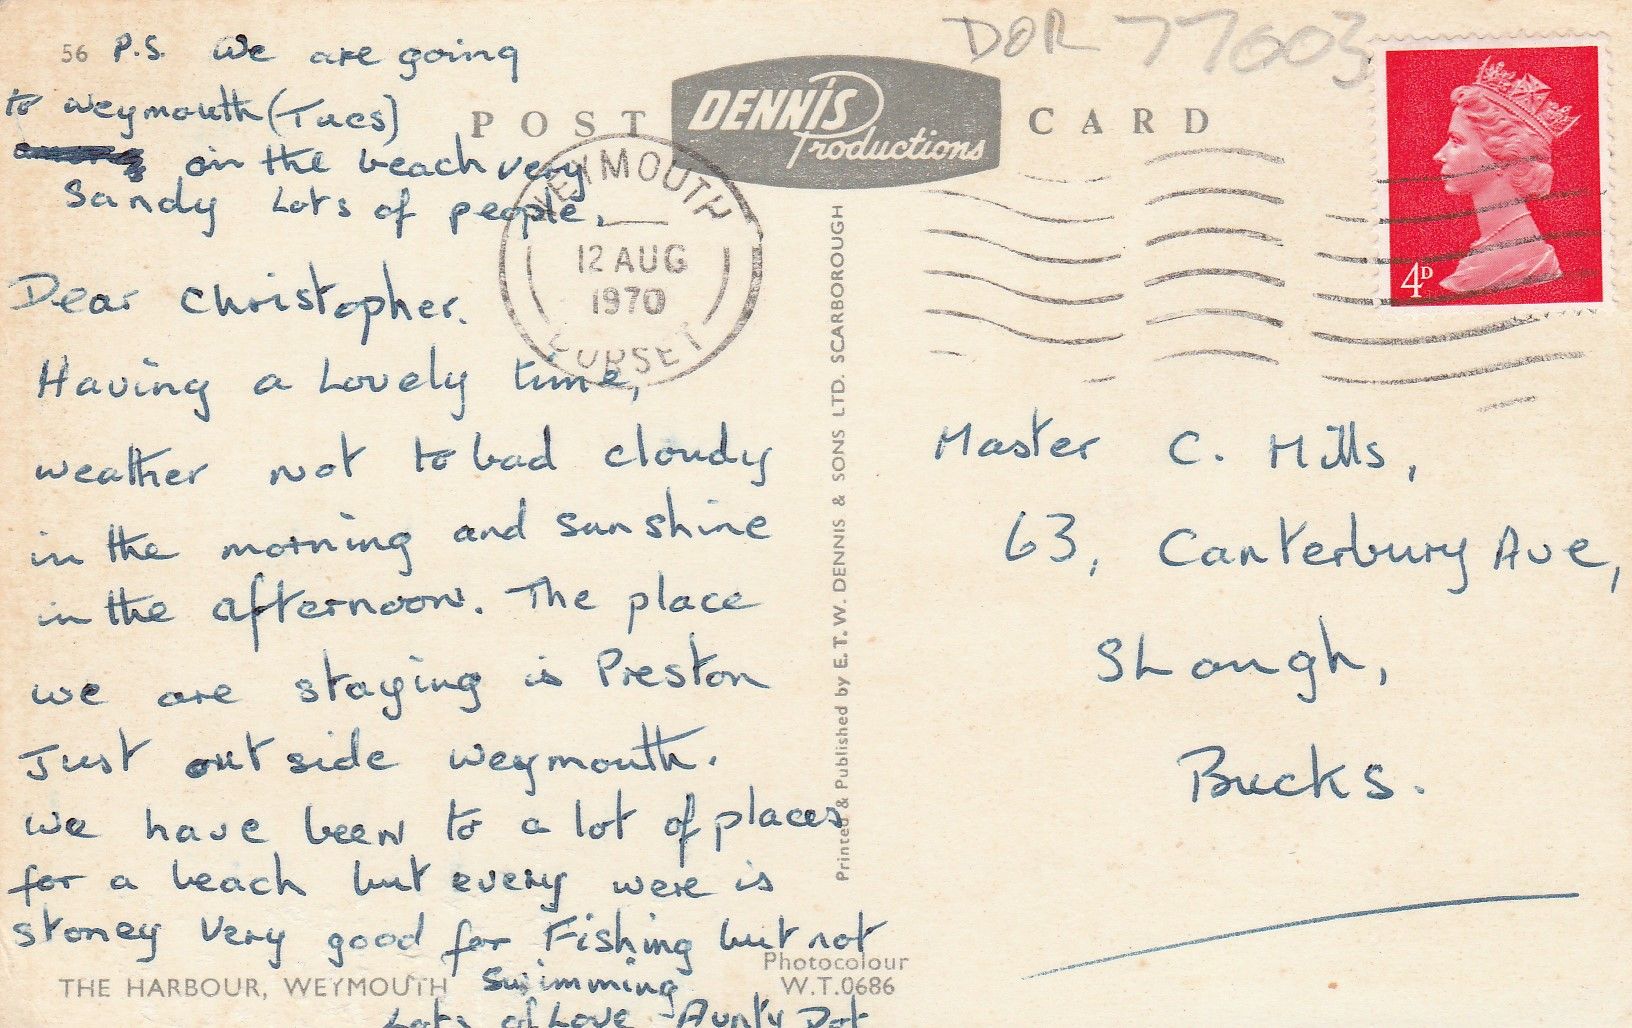 DOR 77603
56 P.S. We are going
to weymouth (Tues)
on the beach very
Sandy Lots of people,
POST CARD
DENNIS
Productions
WEYMOUTH
12 AUG
1970
DORSET
4D
Dear Christopher.
Having a Lovely time,
weather not to bad cloudy
in the morning and sunshine
in the afternoon. The place
we are staying is Preston
Just out side weymouth.
we have been to a lot of places
for a beach but every were is
stoney very good for Fishing but not
swimming
Lots of Love Aunty Dot
THE HARBOUR, WEYMOUTH
Photocolour
W.T.0686
Printed & Published by E. T. W. DENNIS & SONS LTD. SCARBOROUGH
Master C. Mills,
63, Canterbury Ave,
SLough,
Bucks.